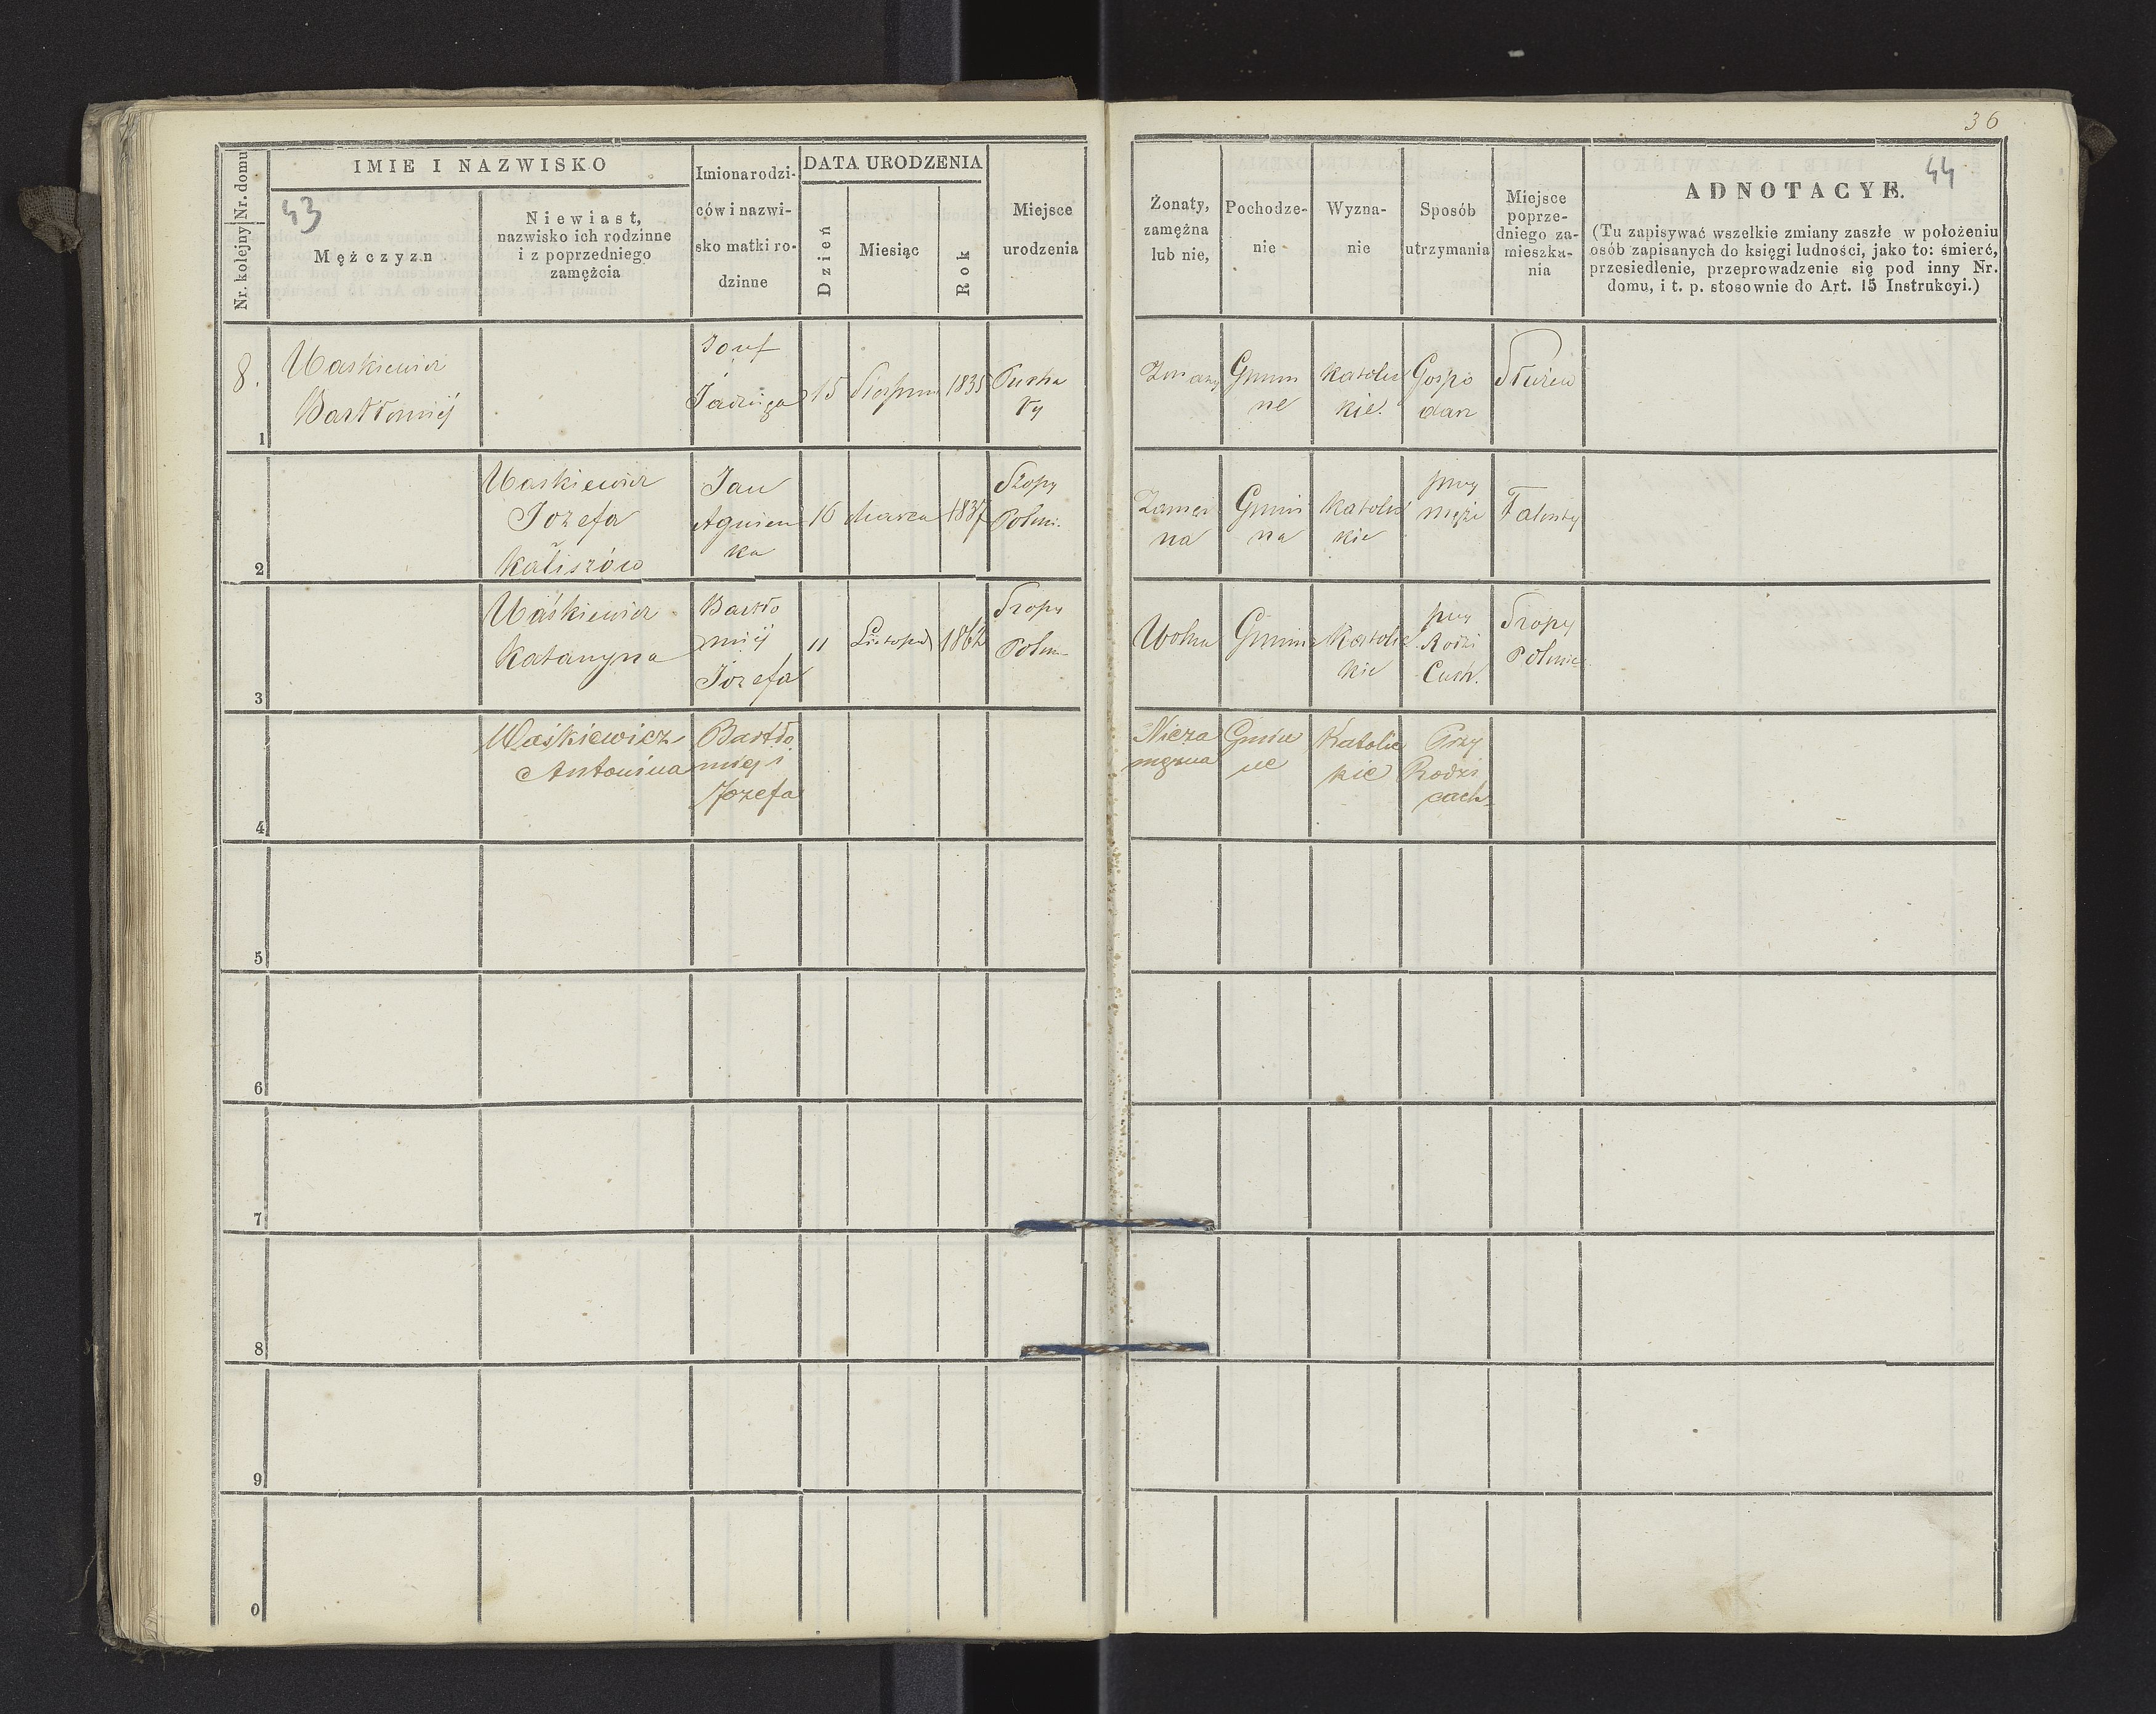 36
43
44
Nr. domu
Nr. kolejny
IMIE I NAZWISKO
Mężczyzn
Niewiast,
nazwisko ich rodzinne
i z poprzedniego
zamężcia
Imiona rodzi-
ców i nazwi-
sko matki ro-
dzinne
DATA URODZENIA
Dzień
Miesiąc
Rok
Miejsce
urodzenia
Żonaty,
zamężna
lub nie,
Pochodze-
nie
Wyzna-
nie
Sposób
utrzymania
Miejsce
poprze-
dniego za-
mieszka-
nia
ADNOTACYE.
(Tu zapisywać wszelkie zmiany zaszłe w położeniu
osób zapisanych do księgi ludności, jako to: śmierć,
przesiedlenie, przeprowadzenie się pod inny Nr.
domu, i t. p. stosownie do Art. 15 Instrukcyi.)
8.
1
Waskiewicz
Bartłomiéj
Józef
Jadwiga
15
Sierpnia
1835
Gmin
ne
Katolic
kie.
Gospo
darz
Służew
2
Waskiewicz
Józefa
Kaliszów
Jan
Agniesz
ka
16
Marca
1837
Szopy
Polski.
Zamęż
na
Gmin
na
Katolic
kie
przy
mężu
Falenty
3
Waśkiewicz
Katarzyna
Bartło
miéj
Józefa
11
Listopad
1862
Szopy
Wolna
Gminne
Katolic
kie
przy
Rodzi
Cach.
Szopy
4
Waśkiewicz
Antonina
Bartło
miej i
Józefa
Nieza
mężna
Gmin
ne
Katolic
kie
Przy
Rodzi
cach
5
6
7
8
9
0